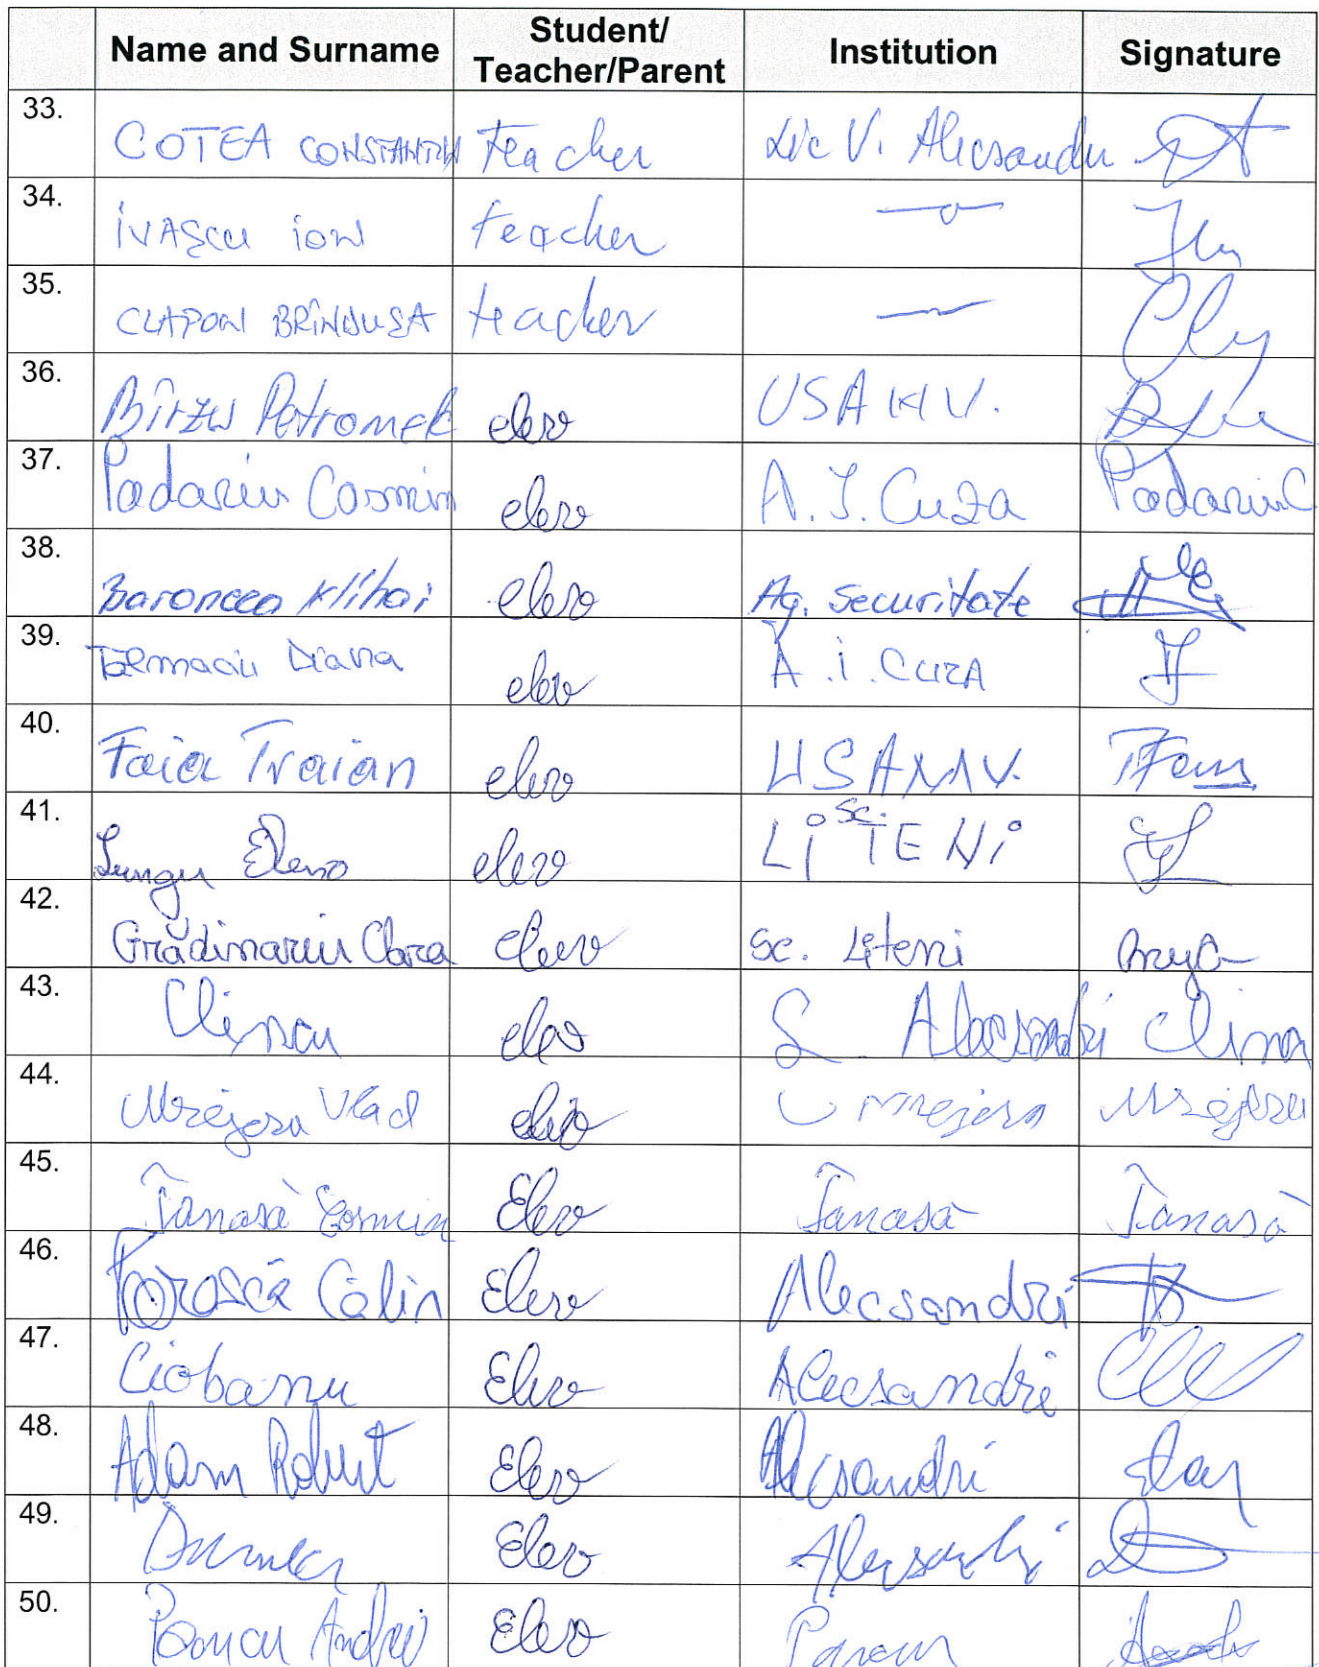 Name and Surname Student/ Teacher/Parent Institution Signature
33. COTEA CONSTANTIN teacher Lic V. Alecsandri
34. IVAȘCU ION teacher
35. CLAPON BRÎNDUSA teacher
36. Bîrzu elev USAMV.
37. Padariu Cosmin elev A. I. Cuza Padariu C
38. Baroncea Mihai elev Ag. Securitate
39. Diana elev A. i. CUZA
40. Faia Traian elev USAMV.
41. Lungu Elena elev Sc. LiTENi
42. Grădinariu Clara elev Sc. Liteni
43. elev Alecsandri
44. Vlad elev
45. Tanasă Cosmin Elev Tanasă Tanasă
46. Călin Elev Alecsandri
47. Ciobanu Elev Alecsandri
48. Adam Robert Elev Alecsandri
49. Elev Alecsandri
50. Andrei Elev